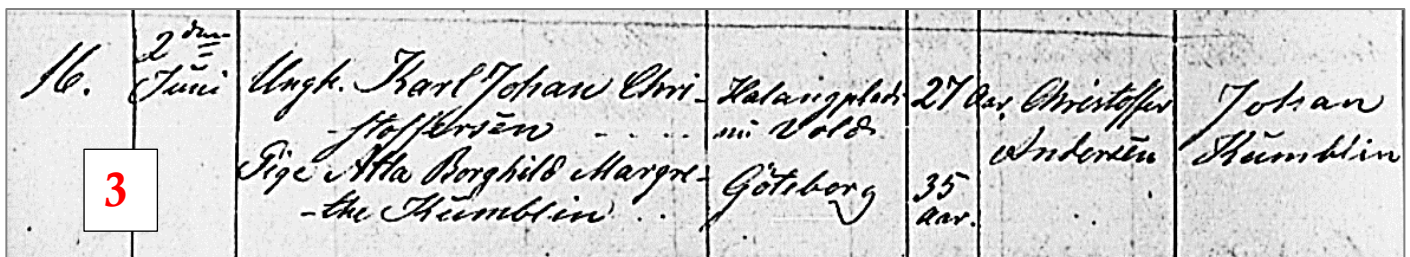 16.
2den
Juni
3
Ungk. Karl Johan Chri-
-stoffersen
Pige Atla Borghild Margre-
-the Kumblin
Vold
Göteborg
27 Aar.
35
Aar.
Christoffer
Andersen
Johan
Kumblin